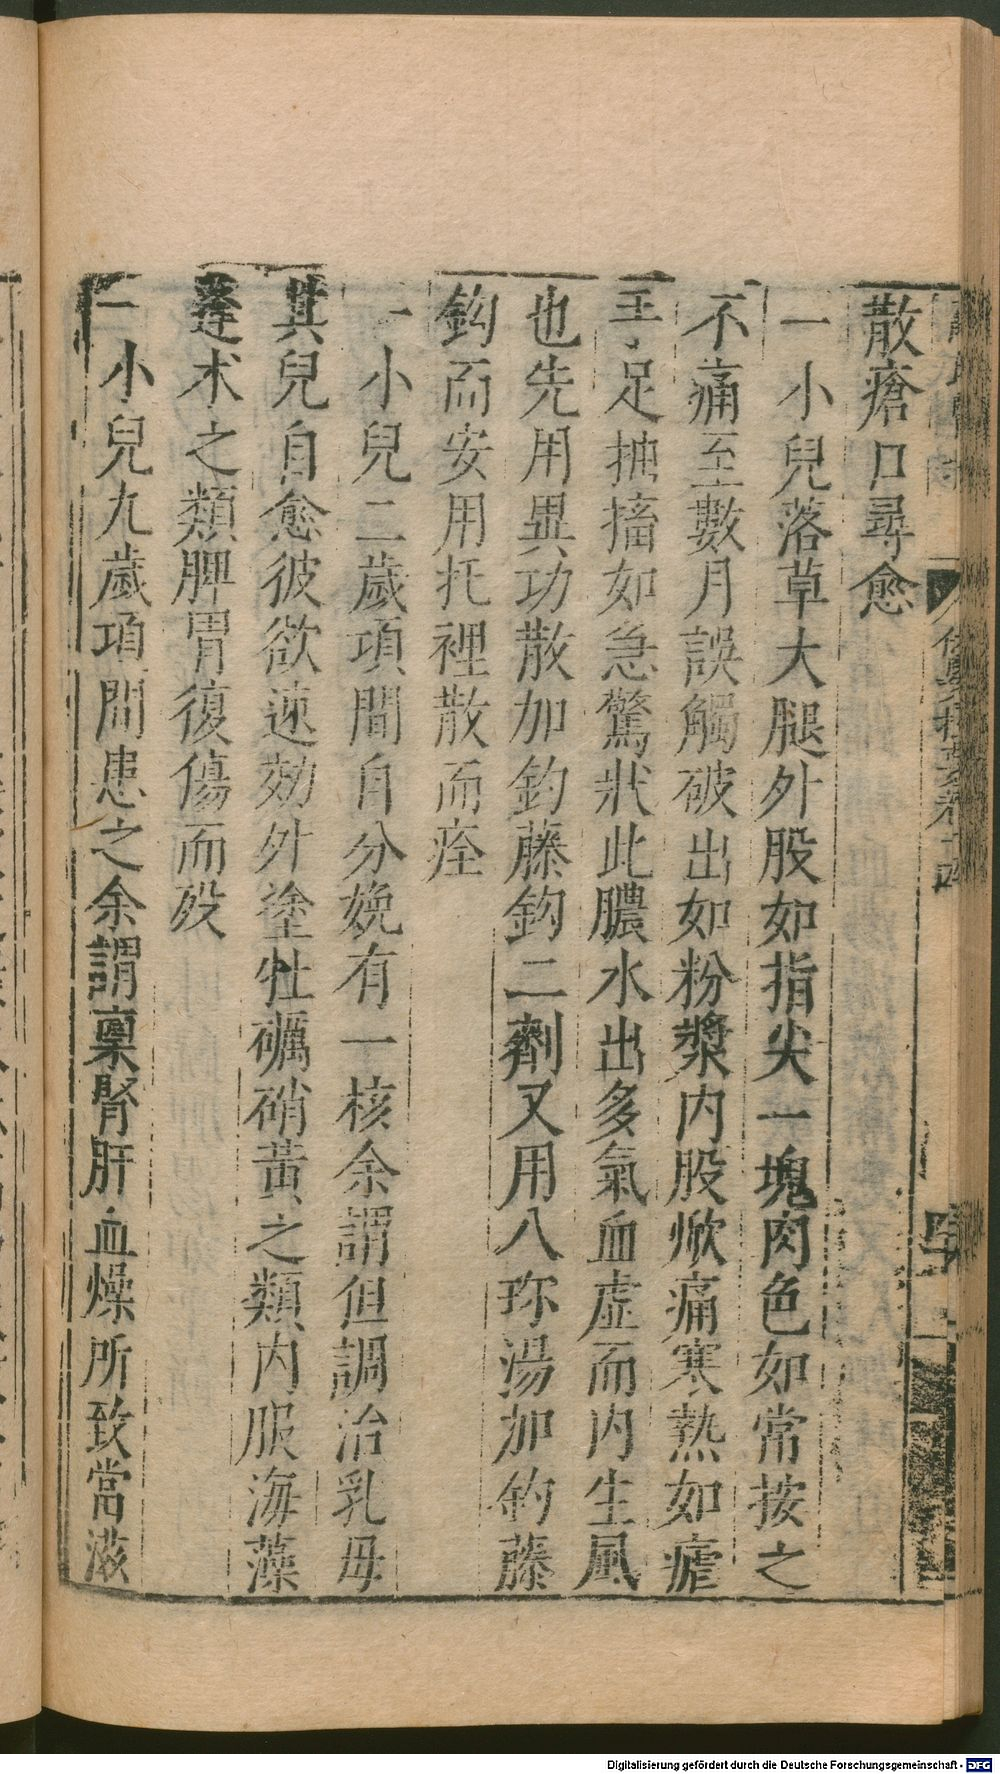 散瘡口尋愈
一小兒落草大腿外股如指尖一塊肉色如常按之
不痛至數月誤觸破出如粉漿内股焮痛寒熱如瘧
手足抽搐如急驚狀此膿水出多氣血虛而内生風
也先用異功散加鈎藤鈎二劑又用八珎湯加鈎藤
鈎而安用托裡散而痊
一小兒二歲項間自分娩有一核余謂但調治乳母
其兒自愈彼欲速効外塗牡礪硝黃之類内服海藻
蓬术之類脾胃復傷而殁
一小兒九歲項間患之余謂禀腎肝血燥所致當滋
Digitalisierung gefördert durch die Deutsche Forschungsgemeinschaft - DFG